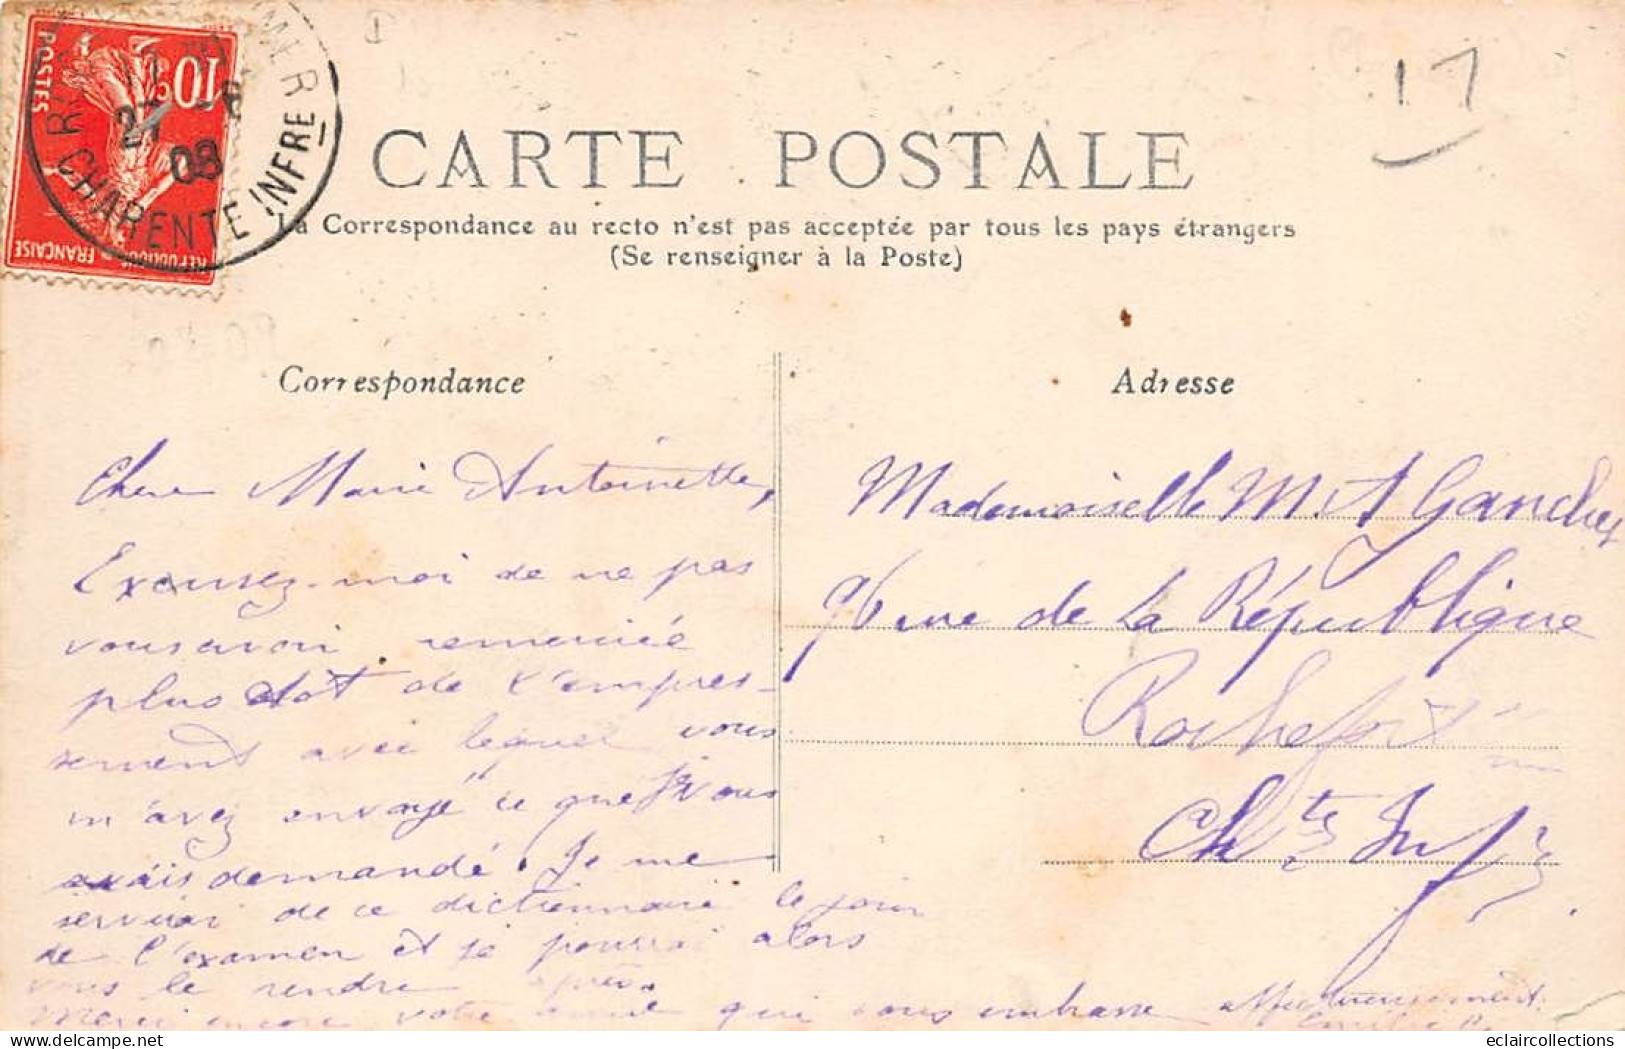 17
10c
POSTES
REPUBLIQUE FRANÇAISE
27 -6
08
CHARENTE INFRE
CARTE POSTALE
La Correspondance au recto n'est pas acceptée par tous les pays étrangers
(Se renseigner à la Poste)
Correspondance
Chère Marie Antoinette,
Excusez-moi de ne pas
vous avoir remerciée
plus tôt de l'empres-
sement avec lequel vous
m'avez envoyé ce que je vous
avais demandé. Je me
servirai de ce dictionnaire le jour
de l'examen et je pourrai alors
vous le rendre après.
Merci encore votre amie qui vous embrasse affectueusement
Adresse
Mademoiselle M. A Ganchey
96 rue de La République
Rochefort
Ch.te Inf.
eclaircollections